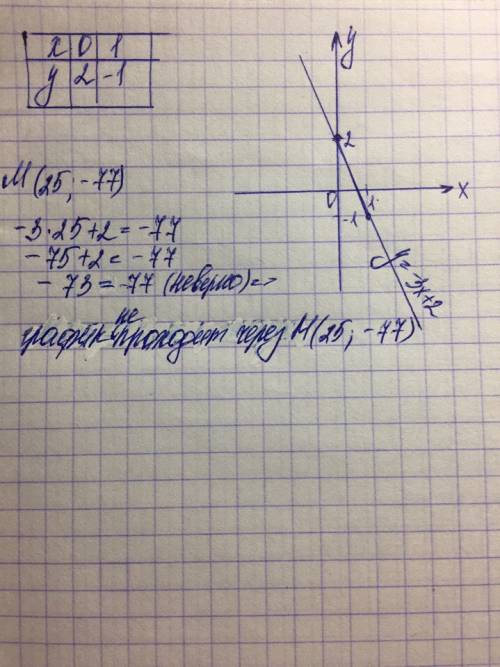 x 0 1
y 2 -1
y
2
0
1
x
-1
y=-3x+2
M(25; -77)
-3·25+2=-77
-75+2=-77
-73=-77 (неверно)=>
график не проходит через M(25; -77)